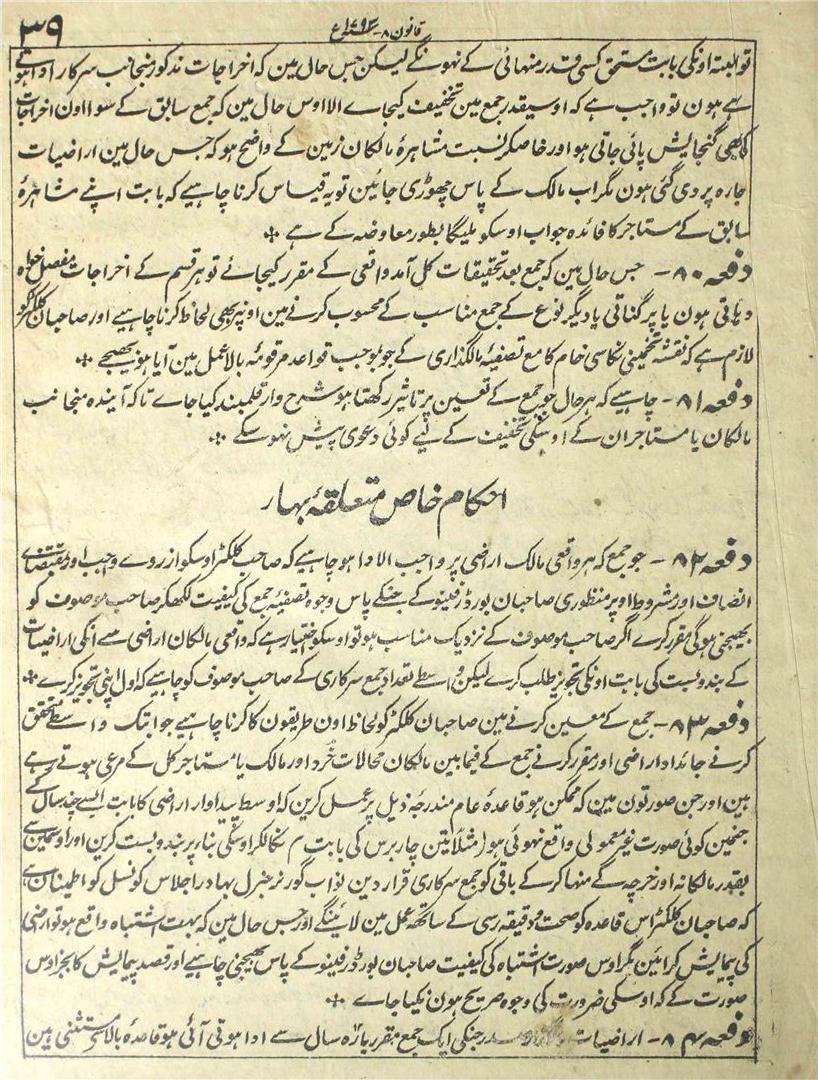 ۳۹
قانون ۸ ۱۷۹۳ع
تو البتہ اونکی بابت مستحق کسی قدر منہائی کے نہونگے لیکن جس حال مین کہ اخراجات مذکور منجانب سرکار ادا ہوتے
رہے ہون تو واجب ہے کہ اوسیقدر جمع مین تخفیف کیجاے الا اوس حال مین کہ جمع سابق کے سوا اون اخراجات
کابھی گنجایش پائی جاتی ہو اور خاصکر نسبت مشاہرۂ مالکان زمین کے واضح ہو کہ جس حال مین اراضیات
جارہ پر دی گئی ہون مگر اب مالک کے پاس چھوڑی جائین تو یہ قیاس کرنا چاہیے کہ بابت اپنے مشاہرۂ
سابق کے مستاجر کا فائدہ جو اب اوسکو ملیگا بطور معاوضہ کے ہے ÷
دفعہ ۸۰ - جس حال مین کہ جمع بعد تحقیقات کل آمد واقعی کے مقرر کیجائے تو ہر قسم کے اخراجات مفصل خواہ
دیہاتی ہون یا پرگناتی یا دیگر نوع کے جمع مناسب کے محسوب کرنے مین اونپر بھی لحاظ کرنا چاہیے اور صاحبان کلکٹر کو
لازم ہے کہ نقشہ تخمینی نکاسی خام کا مع تصفیۂ مالگذاری کے جو بموجب قواعد مرقومۂ بالا عمل مین آیا ہو بھیجے ÷
دفعہ ۸۱ - چاہیے کہ ہر حال جو جمع کے تعین پر تاثیر رکھتا ہو شرح وار قلمبند کیا جاے تاکہ آیندہ منجانب
مالکان یا مستاجران کے اوسکی تخفیف کے لیے کوئی دعوی پیش نہوسکے ÷
احکام خاص متعلقۂ بہار
دفعہ ۸۲ - جو جمع کہ ہر واقعی مالک اراضی پر واجب الادا ہو چاہے کہ صاحب کلکٹر اوسکو ازروے واجب اور مقتضاے
انصاف اور مشروط اوپر منظوری صاحبان بورڈ رفینو کے جنکے پاس وجوہ تصفیۂ جمع کی کیفیت لکھکر صاحب موصوف کو
بھیجنی ہوگی مقرر کرے اگر صاحب موصوف کے نزدیک مناسب ہو تو اوسکو اختیار ہے کہ واقعی مالکان اراضی سے انکی اراضیات
کے بندوبست کی بابت اونکی تجویز طلب کرے لیکن واسطے تعداد جمع سرکاری کے صاحب موصوف کو چاہیے کہ اول اپنی تجویز کرے ÷
دفعہ ۸۳ - جمع کے معین کرنے مین صاحبان کلکٹر کو لحاظ اون طریقون کا کرنا چاہیے جو ابتک واسطے تحقق
کرنے جائداد اراضی اور مقرر کرنے جمع کے فیمابین مالکان محالات خرد اور مالک یا مستاجر کل کے مرعی ہوتے رہے
ہین اور جن صورتون مین کہ ممکن ہو قاعدۂ عام مندرجۂ ذیل پر عمل کرین کہ اوسط پیداوار اراضی کا بابت ایسے چند سال کے
جنمین کوئی صورت غیر معمولی واقع نہوئی ہو (مثلاً تین چار برس کی بابت) نکالکر اوسکی بنا پر بندوبست کرین اور اوسمین سے
بقدر مالکانہ اور خرچہ کے منہا کرکے باقی کو جمع سرکاری قرار دین نواب گورنر جنرل بہادر اجلاس کونسل کو اطمینان ہے
کہ صاحبان کلکٹر اس قاعدہ کو صحت و دقیقہ رسی کے ساتھ عمل مین لائینگے اور جس حال مین کہ بہت اشتباہ واقع ہو تو اراضی
کی پیمایش کرائین مگر اوس صورت اشتباہ کی کیفیت صاحبان بورڈ رفینو کے پاس بھیجنی چاہیے اور قصد پیمایش کا بجز اوس
صورت کے کہ اوسکی ضرورت کی وجوہ صریح ہون نکیا جاے ÷
دفعہ ۸۴ - اراضیات جنکی ایک جمع مقرر بارہ سال سے ادا ہوتی آئی ہو قاعدہ بالا سے مستثنی ہین